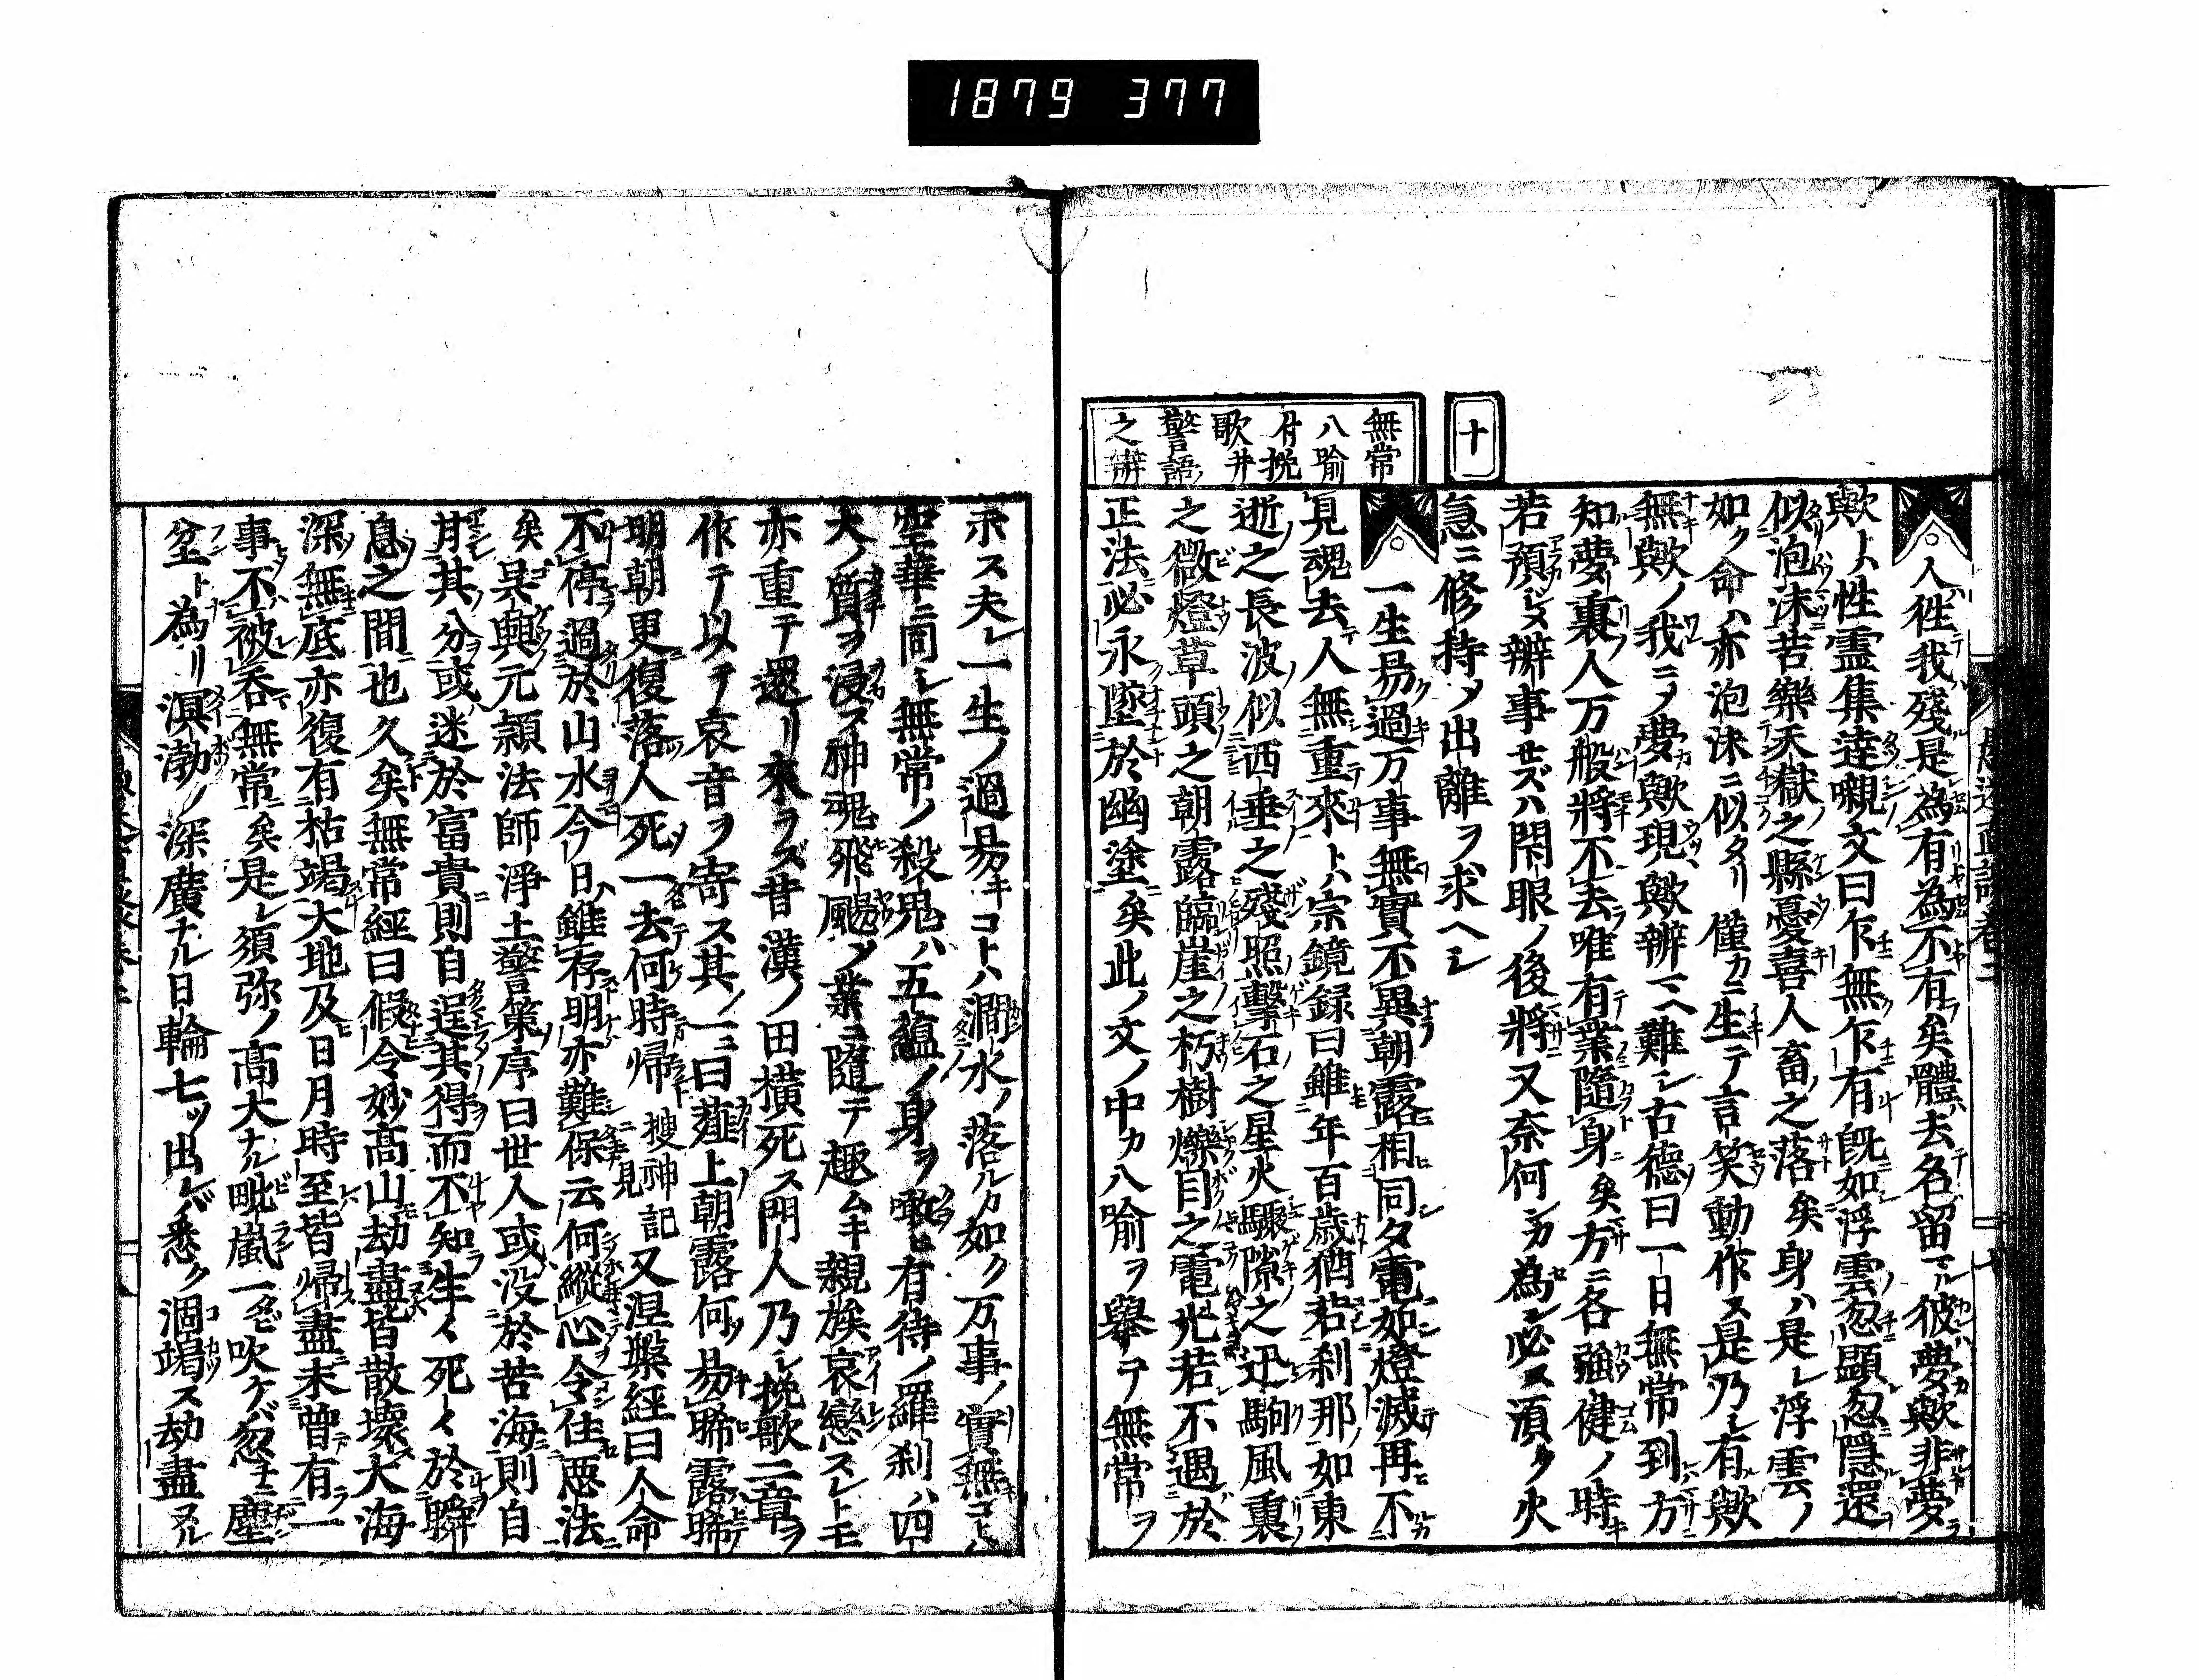 1879 377
十
無常
八喩
付挽
歌并
警語
之辨
人往我殘是為有為不有矣體去名留彼夢歟非夢
歟ト性霊集達嚫文曰乍無乍有既如浮雲忽顕忽隠還
似泡沫苦樂天獄之縣憂喜人畜之落矣身ハ是レ浮雲ノ
如ク命ハ亦泡沫ニ似タリ僅カニ生テ言笑動作ス是乃レ有歟
無歟ノ我ニノ夢歟現歟辨ヘ難シ古徳曰一日無常到方
知夢裏人万般將不去唯有業隨身矣方ニ各強健ノ時
若預メ辨事セズハ閉眼ノ後將又奈何ンカ為ン必ス須ク火
急ニ修持メ出離ヲ求ヘシ
一生易過万事無實不異朝露相同夕電如燈滅再不
見魂去人無重來ト宗鏡録曰雖年百歳猶若刹那如東
逝之長波似西垂之殘照擊石之星火驟隙之迅駒風裏
之微燈草頭之朝露臨崖之朽樹爍目之電光若不遇於
正法必永墮於幽塗矣此ノ文ノ中カ八喻ヲ舉テ無常ヲ
示ス夫レ一生ノ過易キコトハ澗水ノ落ルカ如ク万事ノ實無コトハ
空華ニ同シ無常ノ殺鬼ハ五蘊ノ身ヲ噉ヒ有待ノ羅刹ハ四
大ノ質ヲ浸ス神魂飛颺ノ業ニ隨テ趣ムキ親族哀戀スレトモ
亦重テ還リ來ラズ昔漢ノ田横死ス門人乃シ挽歌二章ヲ
作テ以テ哀音ヲ寄ス其ノ一ニ曰薤上朝露何易晞露晞
明朝更復落人死一去何時歸 搜神記 又涅槃經曰人命
不停過於山水今日雖存明亦難保云何縱心令住悪法
矣呉興元頴法師淨土警策序曰世人或没於苦海則自
甘其分或迷於富貴則自逞其得而不知生々死々於瞬
息之間也久矣無常經曰假令妙高山劫盡皆散壊大海
深無底亦復有枯竭大地及日月時至皆帰盡未曾有一
事不被呑無常矣是レ須弥ノ高大ナル毗嵐一タビ吹ケバ忽チ塵
坌ト為リ溟渤ノ深廣ナル日輪七ツ出レバ悉ク涸竭ス劫盡ヌル